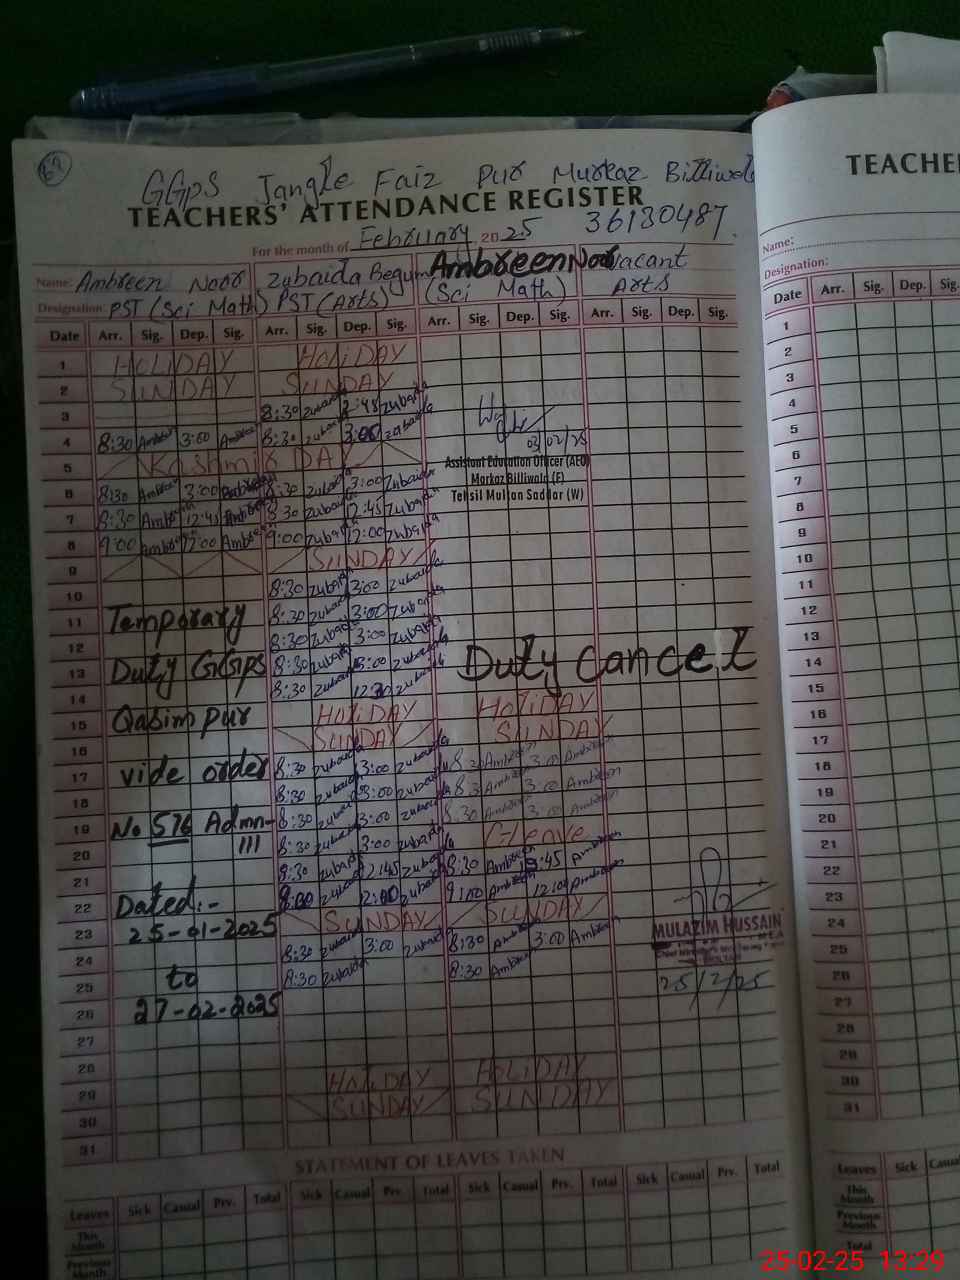 62
GGPS Jangle Faiz Pur Murkaz Billiwala
TEACHERS' ATTENDANCE REGISTER 36130487
For the month of February 2025
Name: Ambreen Noor Zubaida Begum Ambreen Noor Vacant
Designation: PST (Sci Math) PST (Arts) (Sci Math) Arts
Date Arr. Sig. Dep. Sig. Arr. Sig. Dep. Sig. Arr. Sig. Dep. Sig. Arr. Sig. Dep. Sig.
1 HOLIDAY HOLIDAY
2 SUNDAY SUNDAY
3 8:30 Zubaida 2:45 Zubaida
4 8:30 Ambreen 3:00 Ambreen 8:30 Zubaida 3:00 Zubaida
5 Kashmir DAY
6 8:30 Ambreen 3:00 Ambreen 8:30 Zubaida 3:00 Zubaida
7 8:30 Ambreen 12:45 Ambreen 8:30 Zubaida 12:45 Zubaida
8 9:00 Ambreen 12:00 Ambreen 9:00 Zubaida 12:00 Zubaida
03/02/25
Assistant Education Officer (AEO)
Markaz Billiwala (F)
Tehsil Multan Saddar (W)
9 SUNDAY
10 8:30 Zubaida 3:00 Zubaida
11 Temporary 8:30 Zubaida 3:00 Zubaida
12 8:30 Zubaida 3:00 Zubaida
13 Duty GGPS 8:30 Zubaida 3:00 Zubaida Duty Cancel
14 8:30 Zubaida 12:30 Zubaida
15 Qasim pur HOLIDAY HOLIDAY
16 SUNDAY SUNDAY
17 vide order 8:30 Zubaida 3:00 Zubaida 8:30 Ambreen 3:00 Ambreen
18 8:30 Zubaida 3:00 Zubaida 8:30 Ambreen 3:00 Ambreen
19 No 576 Admn-III 8:30 Zubaida 3:00 Zubaida 8:30 Ambreen 3:00 Ambreen
20 8:30 Zubaida 3:00 Zubaida C-Leave
21 8:30 Zubaida 12:45 Zubaida 8:30 Ambreen 12:45 Ambreen
22 Dated:- 9:00 Zubaida 12:00 Zubaida 9:00 Ambreen 12:00 Ambreen
23 25-01-2025 SUNDAY SUNDAY
24 8:30 Zubaida 3:00 Zubaida 8:30 Ambreen 3:00 Ambreen
25 to 8:30 Zubaida 8:30 Ambreen
MULAZIM HUSSAIN
M.E.A
25/2/25
26 27-02-2025
27
28
29 HOLIDAY HOLIDAY
30 SUNDAY SUNDAY
31
STATEMENT OF LEAVES TAKEN
Leaves Sick Casual Prv. Total Sick Casual Prv. Total Sick Casual Prv. Total Sick Casual Prv. Total
This Month
Previous Month
TEACHE
Name:
Designation:
Date Arr. Sig. Dep. Sig.
1
2
3
4
5
6
7
8
9
10
11
12
13
14
15
16
17
18
19
20
21
22
23
24
25
26
27
28
29
30
31
Leaves Sick Casual
This Month
Previous Month
Total
25-02-25 13:29